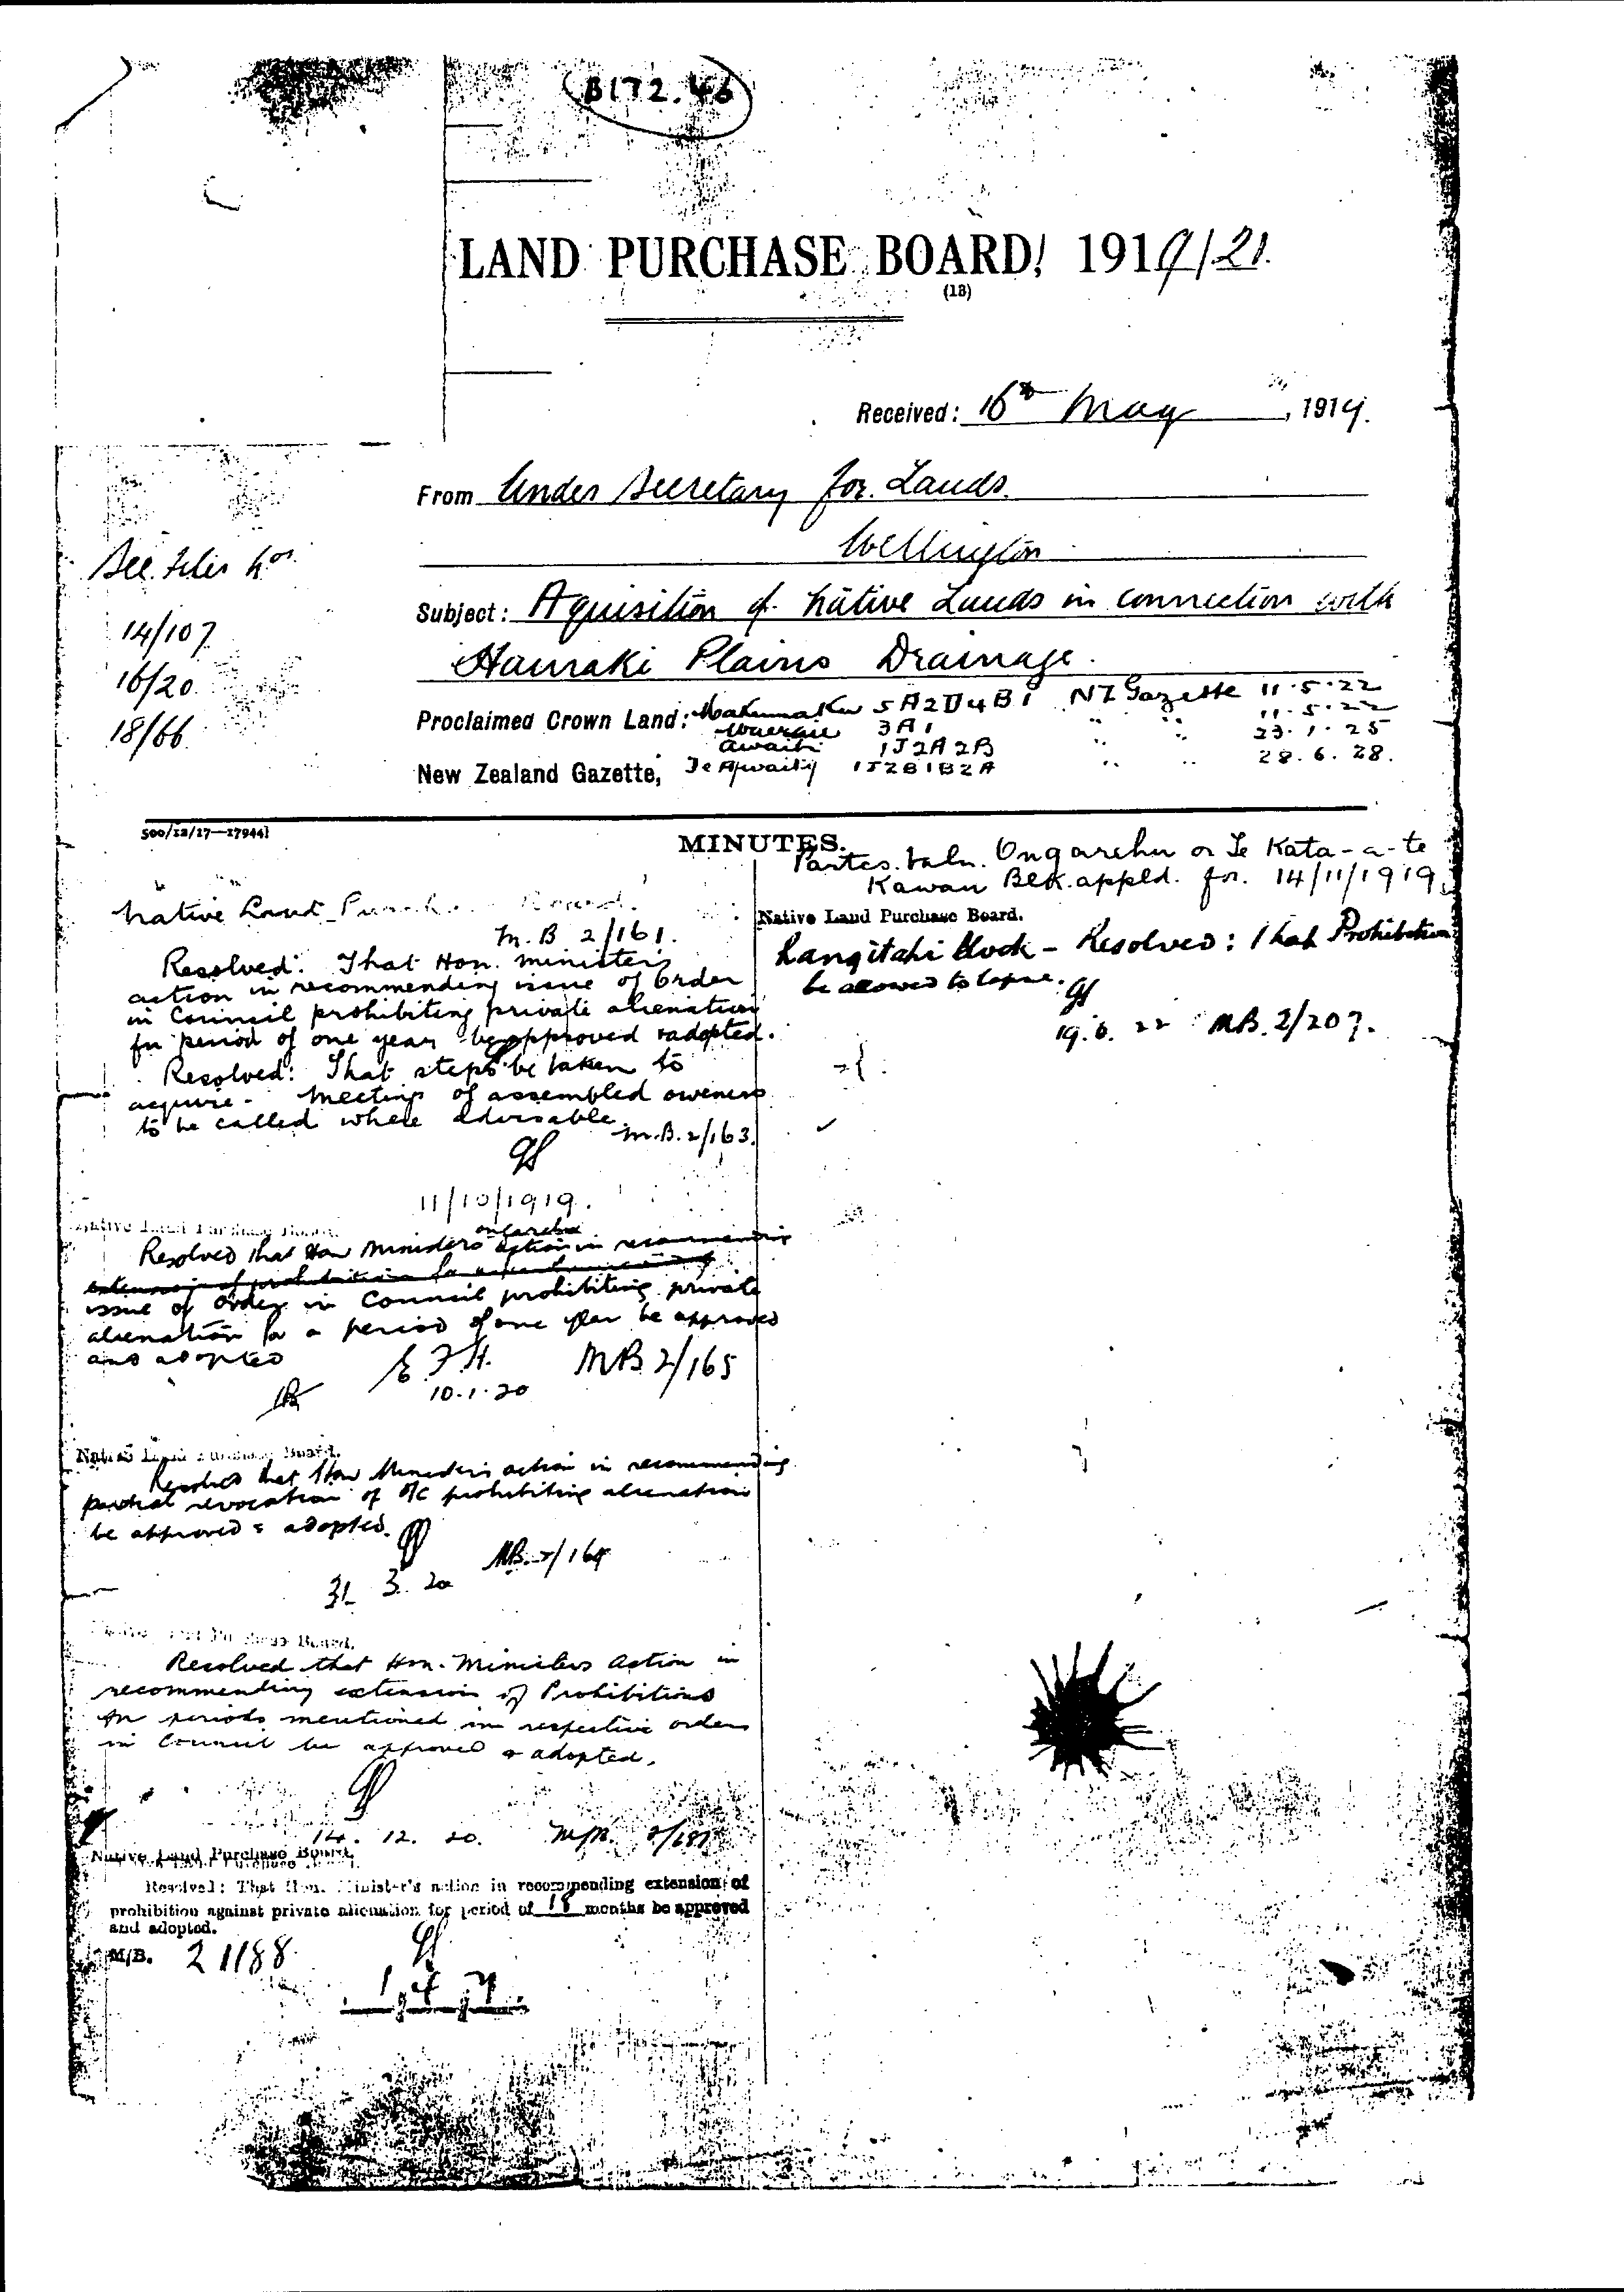 B172.46
LAND PURCHASE BOARD, 1919/21.
(13)
Received: 16th May, 1919.
From Under Secretary for Lands.
Wellington
See Files Nos.
14/107
16/20.
18/66.
Subject: Aquisition of Native Lands in connection with
Hauraki Plains Drainage.
Proclaimed Crown Land: 5A2D4B1 NZ Gazette 11.5.22
3A1 " " 11.5.22
Awaiti 1J2A2B " " 23.1.25
New Zealand Gazette, Te Awaiti 1J2B1B2A " " 28.6.28.
500/12/17—17944]
MINUTES.
Native Land Purchase Board.
M.B 2/161.
Resolved: That Hon. Ministers
action in recommending issue of Order
in Council prohibiting private alienation
for period of one year be approved & adopted.
Resolved: That steps be taken to
acquire - meetings of assembled owners
to be called where advisable.
M.B. 2/163.
11/10/1919.
Native Land Purchase Board.
Ongarehu
Resolved that Hon Ministers action in recommending
extension of prohibition for
issue of Order in Council prohibiting private
alienation for a period of one year be approved
and adopted
E.F.H. MB 2/165
10.1.20
Native Land Purchase Board.
Resolved that Hon Minister's action in recommending
partial revocation of O/C prohibiting alienation
be approved & adopted.
MB. 2/164
31 3. 20
Native Land Purchase Board.
Resolved that Hon. Ministers Action in
recommending extension of Prohibitions
for periods mentioned in respective orders
in Council be approved & adopted.
14. 12. 20. M/B.
Native Land Purchase Board.
Resolved: That Hon. Minister's action in recommending extension of
prohibition against private alienation for period of 18 months be approved
and adopted.
M/B. 2/188
Partcs. Valn. Ongarehu or Te Kata-a-te
Kawau Blk. appld. for. 14/11/1919.
Native Land Purchase Board.
Rangitahi Block - Resolved: That Prohibition
be allowed to lapse.
19.6.22 MB. 2/207.